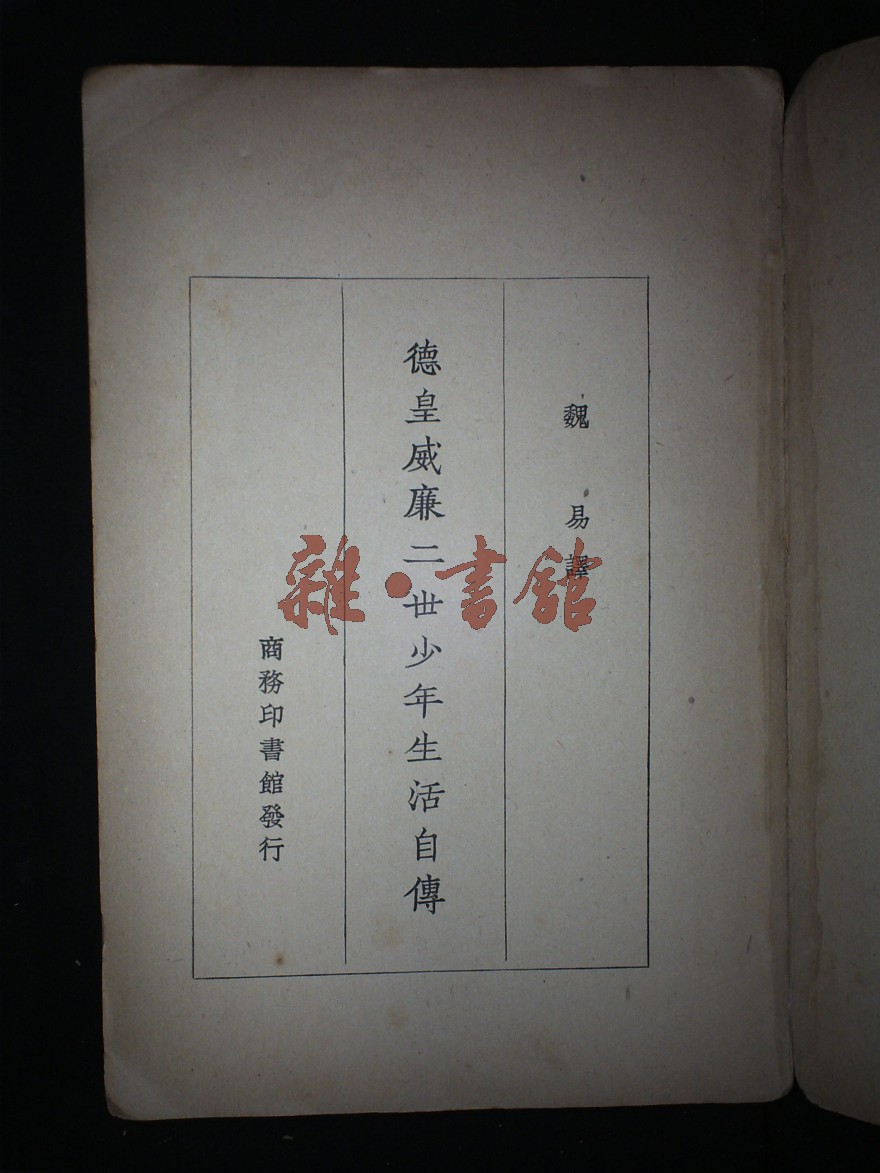 魏易譯
德皇威廉二世少年生活自傳
商務印書館發行
雜·書館